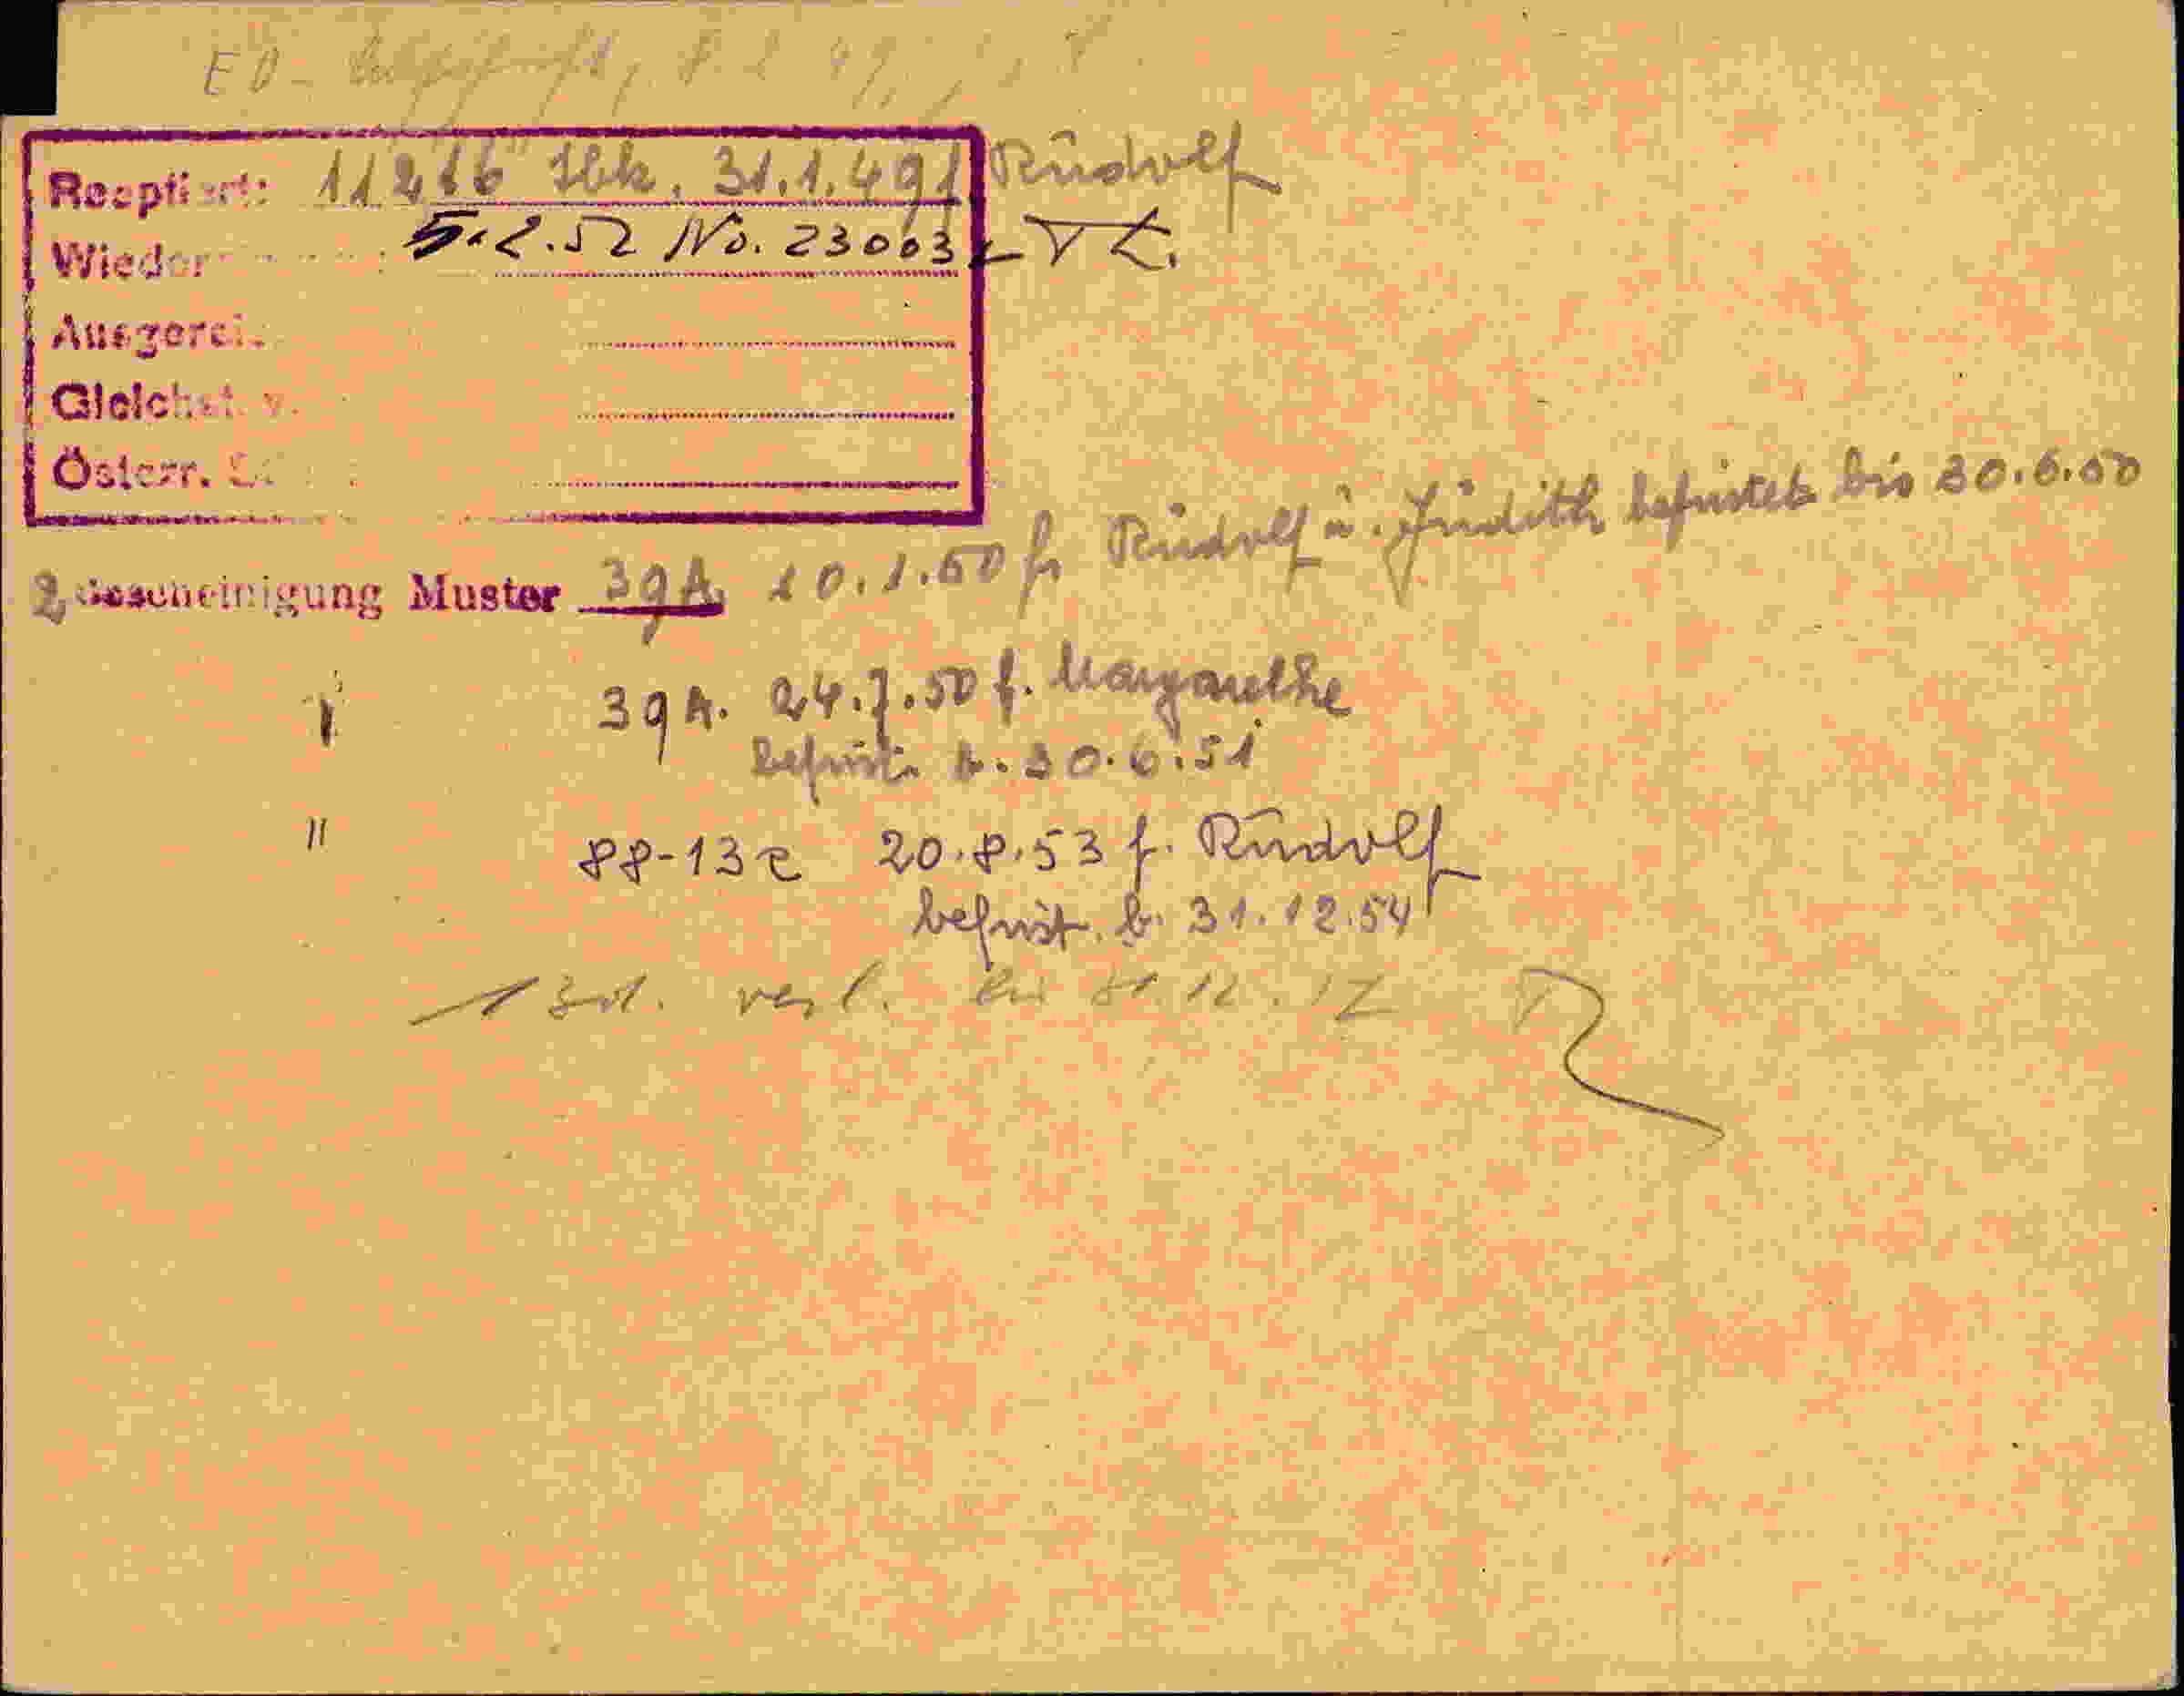 ED-
Reeptiert: 11216 Ibk. 31.1.49 / Rudolf
Wieder 5.2.52 No. 23003
Ausgerei
Gleichst. v.
Österr. 
2. Bescheinigung Muster 39A. 10.1.50 f. Rudolf u. Judith befristet bis 30.6.50
" 39A. 24.7.50 f. Margarethe
befrist. b. 30.6.51
" 88-13e 20.8.53 f. Rudolf
befrist. b. 31.12.54
verl. bis 31.12.